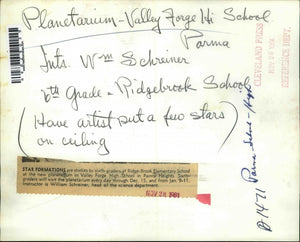 Planetarium - Valley Forge Hi School
Parma
Ints. Wm Schreiner
6th Grade - Ridgebrook School
(Have artist put a few stars
on ceiling)
STAR FORMATIONS are studied by sixth graders of Ridge-Brook Elementary School
at the new planetarium in Valley Forge High School in Parma Heights. Sixth-
graders will visit the planetarium every day through Dec. 15, and from Jan. 9-11.
Instructor is William Schreiner, head of the science department.
NOV 28 1961
CLEVELAND PRESS
NOV 28 1961
REFERENCE DEPT.
Parma Schools - High
B1471